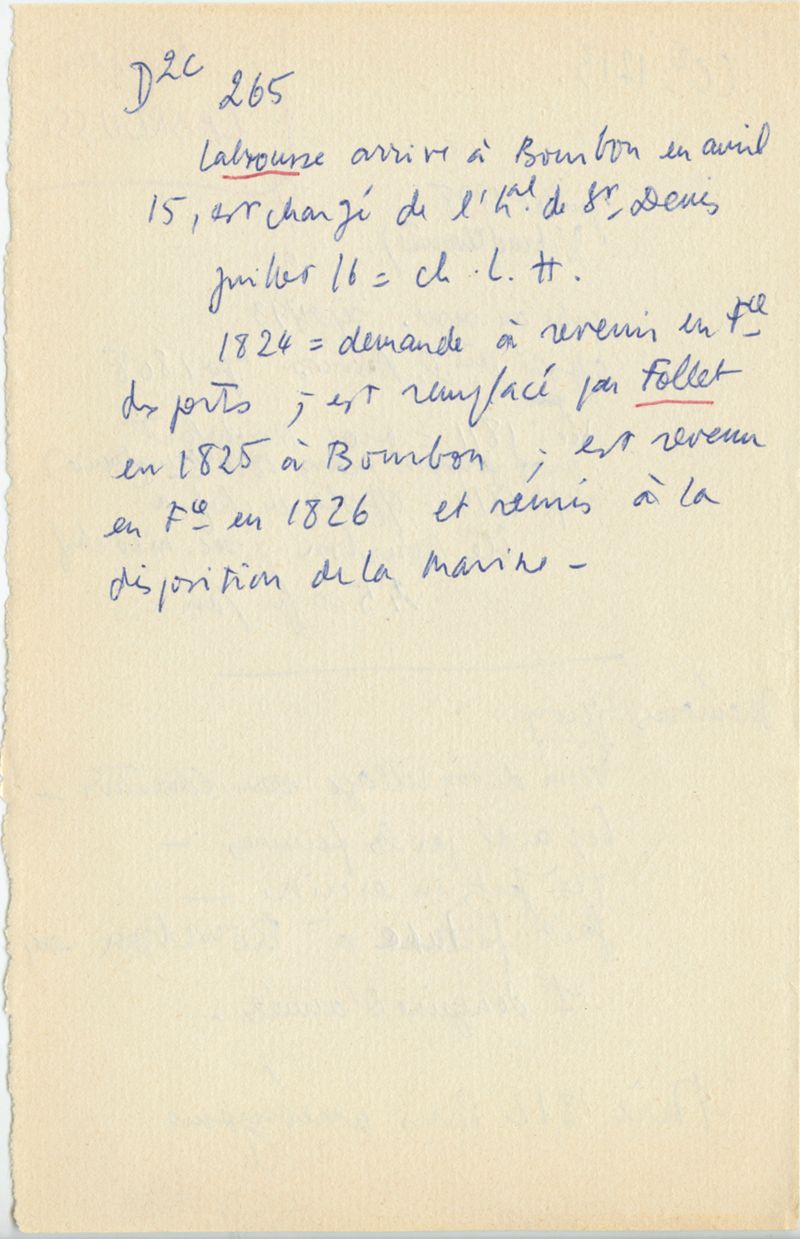 D2C 265
Labrousse arrive à Bourbon en avril
15, est chargé de l'hal. de St Denis
juillet 16 = ch. L. H.
1824 = demande à revenir en Fce
des ports ; est remplacé par Follet
en 1825 à Bourbon ; est revenu
en Fce en 1826 et remis à la
disposition de la Marine -